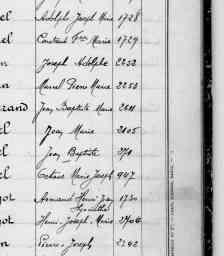 el Adolphe Joseph Marie 1728
el Constant Frs Marie 1729
n Joseph Adolphe 2252
n Marcel Pierre Marie 2253
rand Jean Baptiste Marie
el Jean Marie 2105
el Jean Baptiste
el Marie Joseph 947
got Armand Henri Jean 1730
Hyacinthe
got Henri Joseph Marie
n Pierre Joseph 2242